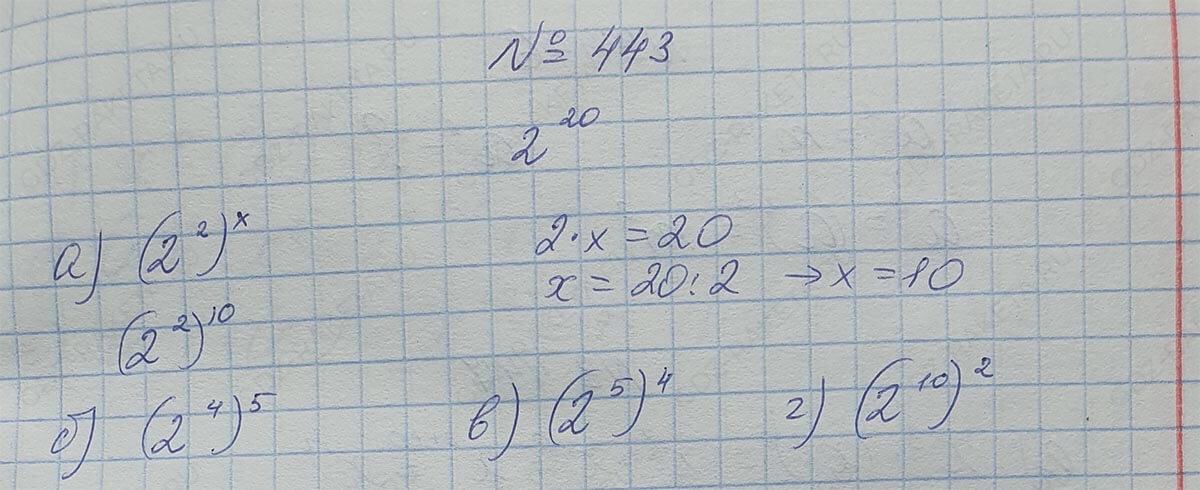 № 443
2^20
а) (2^2)^x 2·x = 20
x = 20:2 → x = 10
(2^2)^10
б) (2^4)^5 в) (2^5)^4 г) (2^10)^2